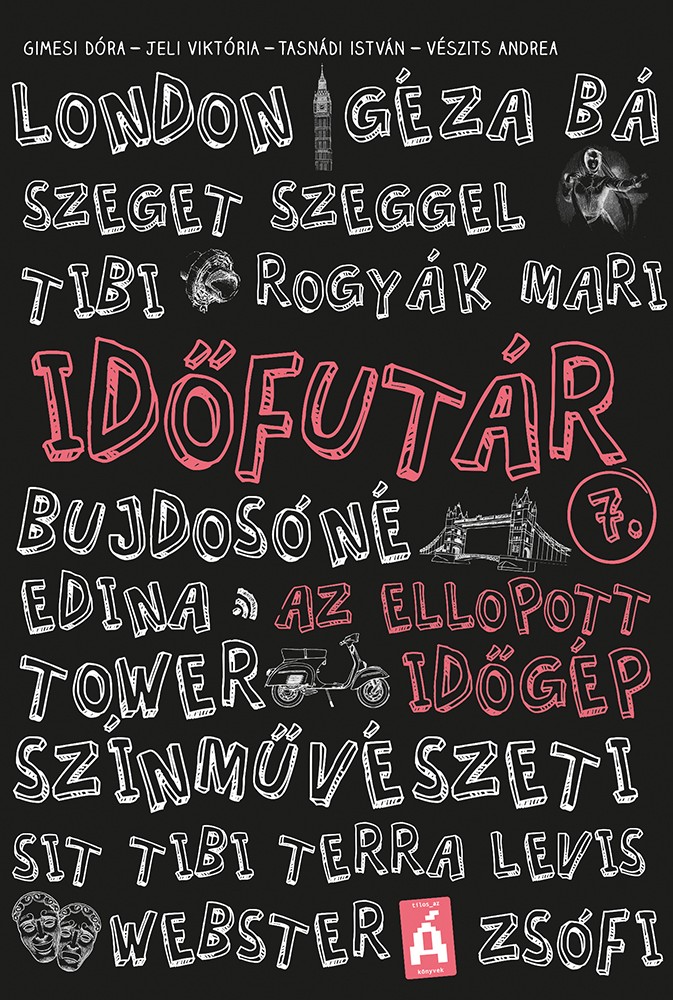 GIMESI DÓRA – JELI VIKTÓRIA – TASNÁDI ISTVÁN – VÉSZITS ANDREA
LONDON GÉZA BÁ
SZEGET SZEGGEL
TIBI ROGYÁK MARI
IDŐFUTÁR
7.
BUJDOSÓNÉ
EDINA AZ ELLOPOTT
TOWER IDŐGÉP
SZÍNMŰVÉSZETI
SIT TIBI TERRA LEVIS
WEBSTER ZSÓFI
tilos_az
Á
könyvek